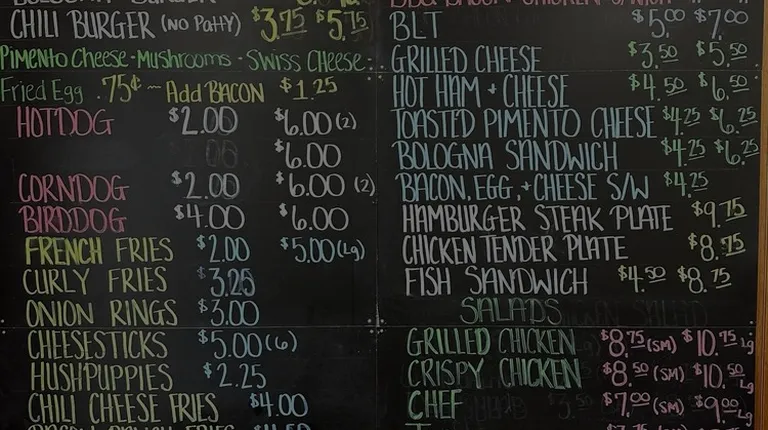 CHILI BURGER (NO PATTY) $3.75 $5.75
PIMENTO CHEESE - MUSHROOMS - SWISS CHEESE
FRIED EGG .75¢ ~ ADD BACON $1.25
HOTDOG $2.00 $6.00 (2)
$6.00
CORNDOG $2.00 $6.00 (2)
BIRDDOG $4.00 $6.00
FRENCH FRIES $2.00 $5.00 (Lg)
CURLY FRIES $3.25
ONION RINGS $3.00
CHEESESTICKS $5.00 (6)
HUSHPUPPIES $2.25
CHILI CHEESE FRIES $4.00
BBQ BACON CHICKEN SANWICH
BLT $5.00 $7.00
GRILLED CHEESE $3.50 $5.50
HOT HAM + CHEESE $4.50 $6.50
TOASTED PIMENTO CHEESE $4.25 $6.25
BOLOGNA SANDWICH $4.25 $6.25
BACON, EGG, + CHEESE S/W $4.25
HAMBURGER STEAK PLATE $9.75
CHICKEN TENDER PLATE $8.75
FISH SANDWICH $4.50 $8.75
SALADS
GRILLED CHICKEN $8.75 (SM) $10.75 Lg
CRISPY CHICKEN $8.50 (SM) $10.50 Lg
CHEF $7.00 (SM) $9.00 Lg